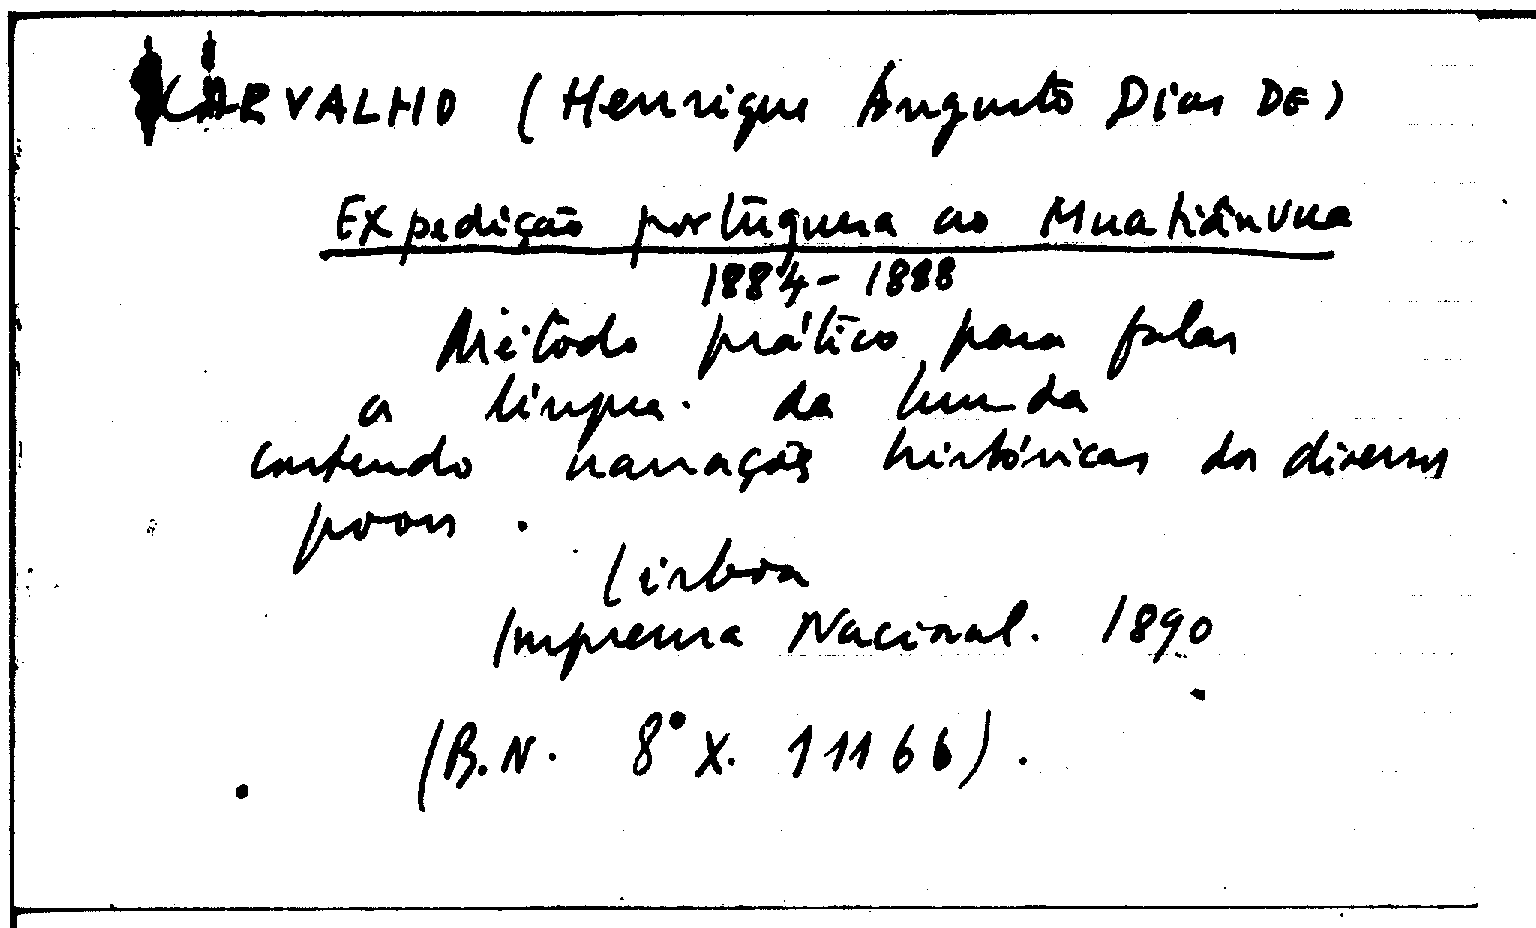 CARVALHO (Henrique Augusto Dias DE)
Expedição portuguesa ao Muatiânvua
1884-1888
Método prático para falar
a língua. da Lunda
contendo narrações históricas dos diversos
povos.
Lisboa
Imprensa Nacional. 1890
(B.N. 8° X. 11166).